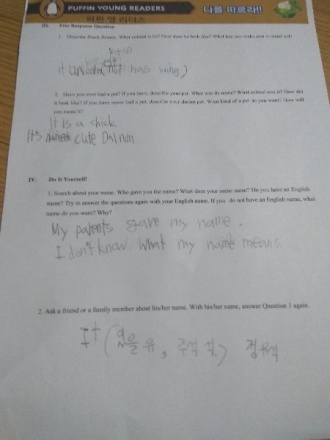 PUFFIN YOUNG READERS
나를 따르라!!
III. Free Response Question
it unicorn(not has wing)
2. Have you ever had a pet? If you have, describe your pet. What was its name? What animal was it? How did
it look like? If you have never had a pet, describe your dream pet. What kind of a pet do you want? How will
you name it?
It is a chick
It's cute
IV. Do It Yourself!
1. Search about your name. Who gave you the name? What does your name mean? Do you have an English
name? Try to answer the questions again with your English name. If you do not have an English name, what
name do you want? Why?
My parents gave my name.
I don't know what my name means.
2. Ask a friend or a family member about his/her name. With his/her name, answer Question 1 again.
It (있을 유, 주석 석)